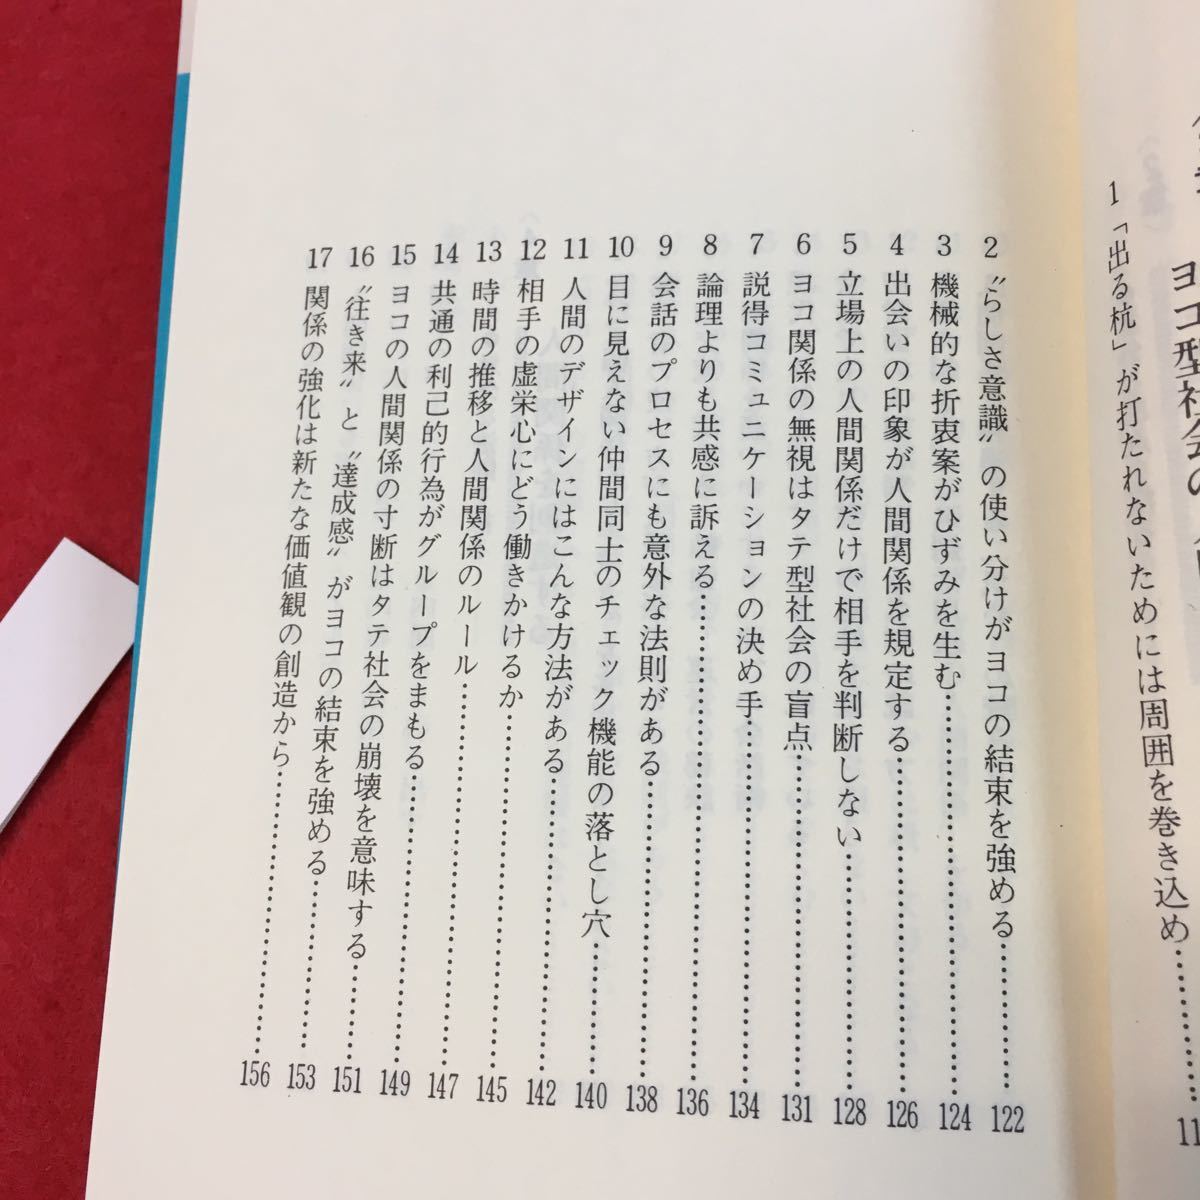 ヨコ型社会の
1 「出る杭」が打たれないためには周囲を巻き込め……
2 〝らしさ意識〟の使い分けがヨコの結束を強める……122
3 機械的な折衷案がひずみを生む……124
4 出会いの印象が人間関係を規定する……126
5 立場上の人間関係だけで相手を判断しない……128
6 ヨコ関係の無視はタテ型社会の盲点……131
7 説得コミュニケーションの決め手……134
8 論理よりも共感に訴える……136
9 会話のプロセスにも意外な法則がある……138
10 目に見えない仲間同士のチェック機能の落とし穴……140
11 人間のデザインにはこんな方法がある……142
12 相手の虚栄心にどう働きかけるか……145
13 時間の推移と人間関係のルール……147
14 共通の利己的行為がグループをまもる……149
15 ヨコの人間関係の寸断はタテ社会の崩壊を意味する……151
16 〝往き来〟と〝達成感〟がヨコの結束を強める……153
17 関係の強化は新たな価値観の創造から……156